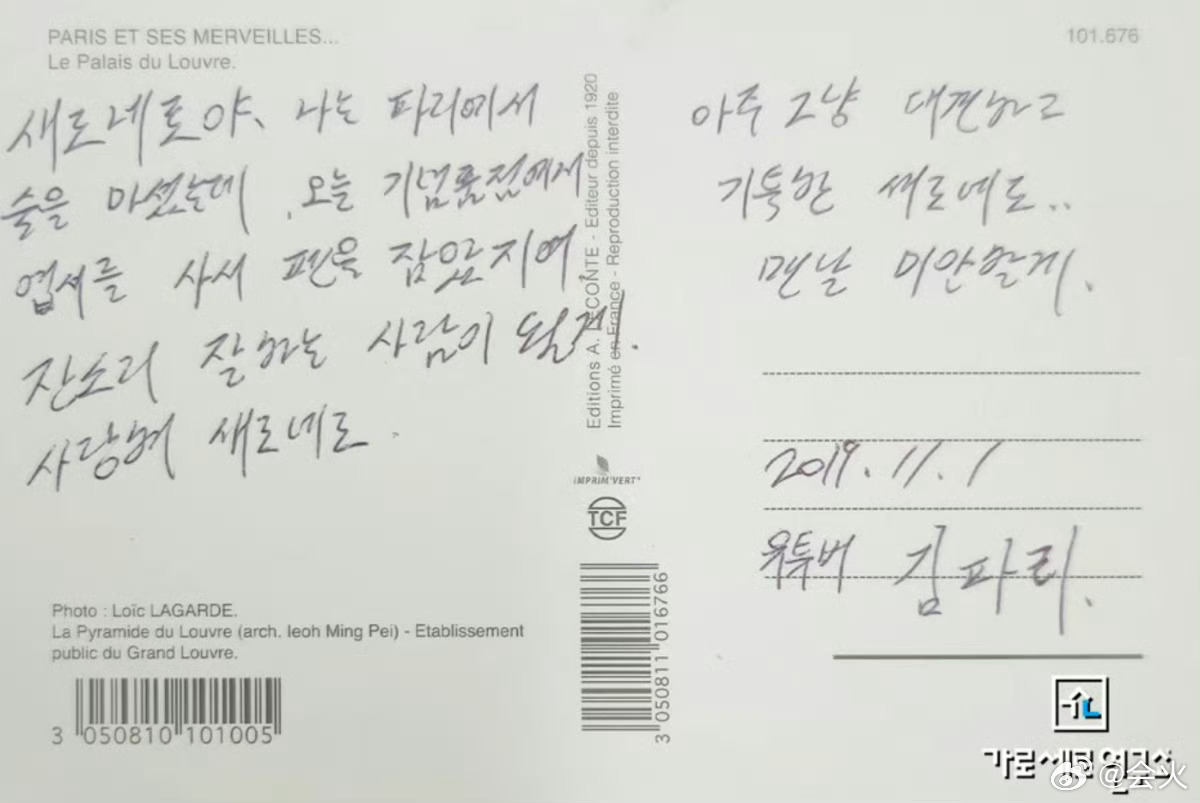 PARIS ET SES MERVEILLES...
Le Palais du Louvre.
101.676
새로네로야, 나는 파리에서
술을 마셨는데, 오늘 기념품점에서
엽서를 사서 펜을 잡았지여
잔소리 잘하는 사람이 될게.
사랑해 새로네로.
Editions A. LECONTE - Editeur depuis 1920
Imprimé en France - Reproduction interdite
IMPRIM'VERT®
TCF
3 050811 016766
Photo : Loïc LAGARDE.
La Pyramide du Louvre (arch. Ieoh Ming Pei) - Etablissement
public du Grand Louvre.
3 050810 101005
아주 그냥 대견하고
기특한 새로네로..
맨날 미안할게.
2019.11.1
유투버 김파리.
가로세로연구소
@会火